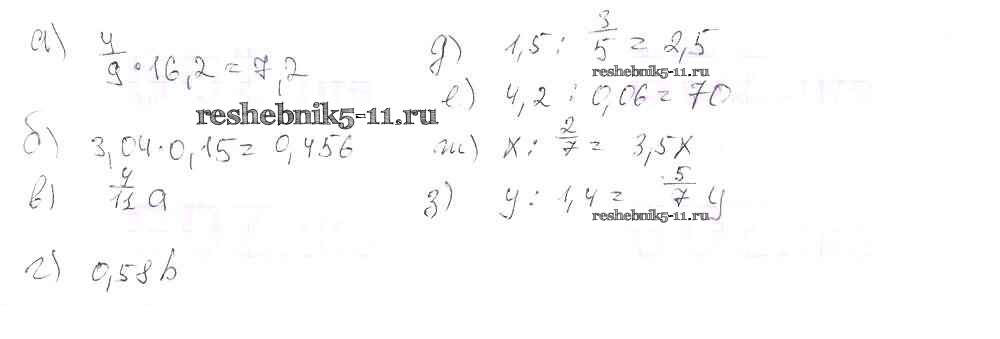 а) 4/9 · 16,2 = 7,2
б) 3,04 · 0,15 = 0,456
в) 4/11 a
г) 0,58b
д) 1,5 : 3/5 = 2,5
е) 4,2 : 0,06 = 70
ж) x : 2/7 = 3,5x
з) y : 1,4 = 5/7 y
reshebnik5-11.ru
reshebnik5-11.ru
reshebnik5-11.ru